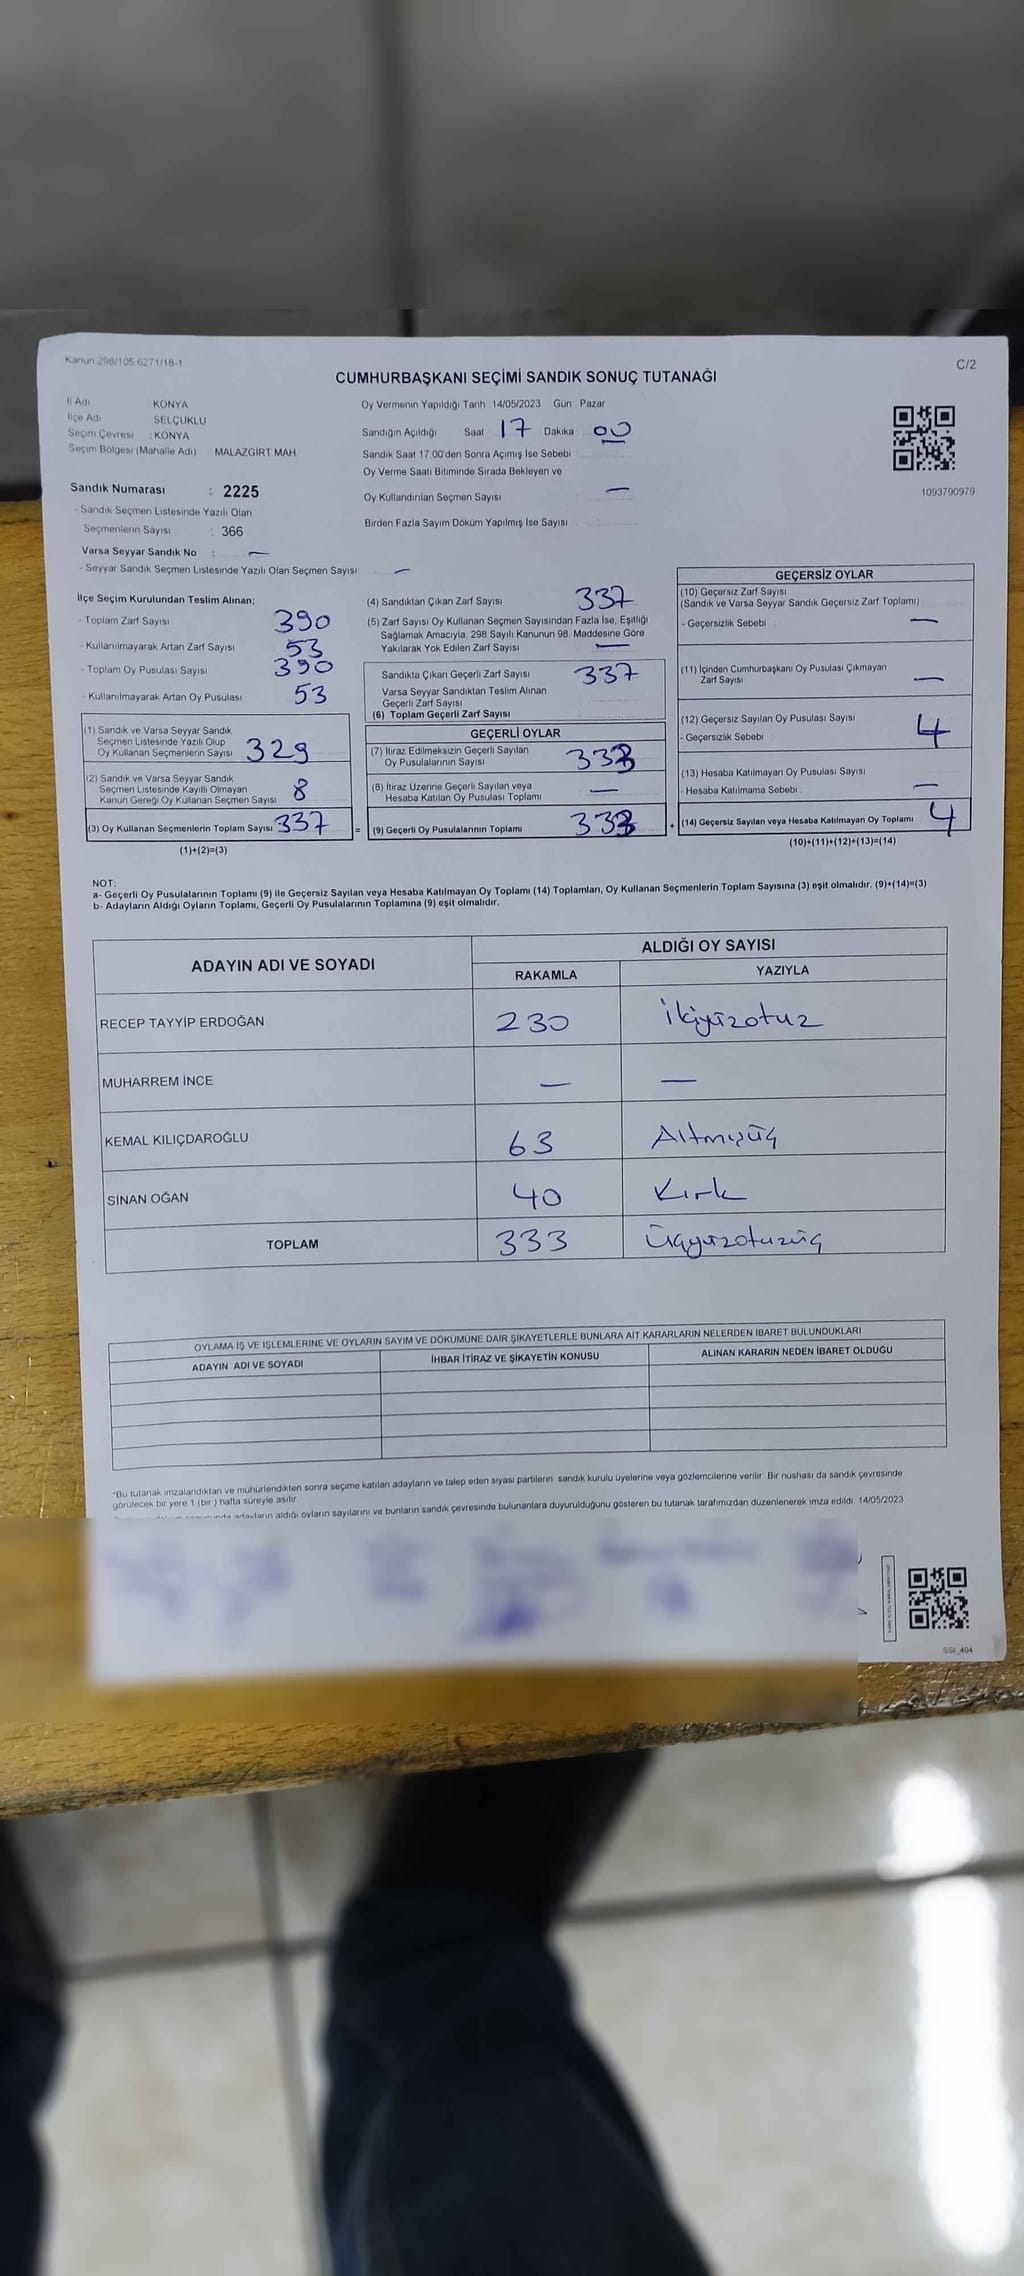 Kanun 298/105.6271/18-1
C/2
CUMHURBAŞKANI SEÇİMİ SANDIK SONUÇ TUTANAĞI
İl Adı KONYA
İlçe Adı SELÇUKLU
Seçim Çevresi : KONYA
Seçim Bölgesi (Mahalle Adı) MALAZGİRT MAH
Sandık Numarası : 2225
- Sandık Seçmen Listesinde Yazılı Olan
Seçmenlerin Sayısı : 366
Varsa Seyyar Sandık No : —
- Seyyar Sandık Seçmen Listesinde Yazılı Olan Seçmen Sayısı —
Oy Vermenin Yapıldığı Tarih 14/05/2023 Gün Pazar
Sandığın Açıldığı Saat 17 Dakika 00
Sandık Saat 17.00'den Sonra Açılmış İse Sebebi
Oy Verme Saati Bitiminde Sırada Bekleyen ve
Oy Kullandırılan Seçmen Sayısı —
Birden Fazla Sayım Döküm Yapılmış İse Sayısı
1093790979
İlçe Seçim Kurulundan Teslim Alınan;
- Toplam Zarf Sayısı 390
- Kullanılmayarak Artan Zarf Sayısı 53
- Toplam Oy Pusulası Sayısı 390
- Kullanılmayarak Artan Oy Pusulası 53
(1) Sandık ve Varsa Seyyar Sandık
Seçmen Listesinde Yazılı Olup
Oy Kullanan Seçmenlerin Sayısı 329
(2) Sandık ve Varsa Seyyar Sandık
Seçmen Listesinde Kayıtlı Olmayan
Kanun Gereği Oy Kullanan Seçmen Sayısı 8
(3) Oy Kullanan Seçmenlerin Toplam Sayısı 337
(1)+(2)=(3)
(4) Sandıktan Çıkan Zarf Sayısı 337
(5) Zarf Sayısı Oy Kullanan Seçmen Sayısından Fazla İse, Eşitliği
Sağlamak Amacıyla, 298 Sayılı Kanunun 98. Maddesine Göre
Yakılarak Yok Edilen Zarf Sayısı —
Sandıkta Çıkan Geçerli Zarf Sayısı 337
Varsa Seyyar Sandıktan Teslim Alınan
Geçerli Zarf Sayısı
(6) Toplam Geçerli Zarf Sayısı
GEÇERLİ OYLAR
(7) İtiraz Edilmeksizin Geçerli Sayılan
Oy Pusulalarının Sayısı 333
(8) İtiraz Üzerine Geçerli Sayılan veya
Hesaba Katılan Oy Pusulası Toplamı —
= (9) Geçerli Oy Pusulalarının Toplamı 333 +
GEÇERSİZ OYLAR
(10) Geçersiz Zarf Sayısı
(Sandık ve Varsa Seyyar Sandık Geçersiz Zarf Toplamı)
- Geçersizlik Sebebi —
(11) İçinden Cumhurbaşkanı Oy Pusulası Çıkmayan
Zarf Sayısı —
(12) Geçersiz Sayılan Oy Pusulası Sayısı 4
- Geçersizlik Sebebi
(13) Hesaba Katılmayan Oy Pusulası Sayısı
- Hesaba Katılmama Sebebi —
(14) Geçersiz Sayılan veya Hesaba Katılmayan Oy Toplamı 4
(10)+(11)+(12)+(13)=(14)
NOT:
a- Geçerli Oy Pusulalarının Toplamı (9) ile Geçersiz Sayılan veya Hesaba Katılmayan Oy Toplamı (14) Toplamları, Oy Kullanan Seçmenlerin Toplam Sayısına (3) eşit olmalıdır. (9)+(14)=(3)
b- Adayların Aldığı Oyların Toplamı, Geçerli Oy Pusulalarının Toplamına (9) eşit olmalıdır.
ADAYIN ADI VE SOYADI ALDIĞI OY SAYISI
RAKAMLA YAZIYLA
RECEP TAYYİP ERDOĞAN 230 ikiyüzotuz
MUHARREM İNCE — —
KEMAL KILIÇDAROĞLU 63 Altmışüç
SİNAN OĞAN 40 Kırk
TOPLAM 333 Üçyüzotuzüç
OYLAMA İŞ VE İŞLEMLERİNE VE OYLARIN SAYIM VE DÖKÜMÜNE DAİR ŞİKAYETLERLE BUNLARA AİT KARARLARIN NELERDEN İBARET BULUNDUKLARI
ADAYIN ADI VE SOYADI İHBAR İTİRAZ VE ŞİKAYETİN KONUSU ALINAN KARARIN NEDEN İBARET OLDUĞU
*Bu tutanak imzalandıktan ve mühürlendikten sonra seçime katılan adayların ve talep eden siyasi partilerin sandık kurulu üyelerine veya gözlemcilerine verilir. Bir nüshası da sandık çevresinde
görülecek bir yere 1 (bir ) hafta süreyle asılır.
adayların aldığı oyların sayılarını ve bunların sandık çevresinde bulunanlara duyurulduğunu gösteren bu tutanak tarafımızdan düzenlenerek imza edildi. 14/05/2023